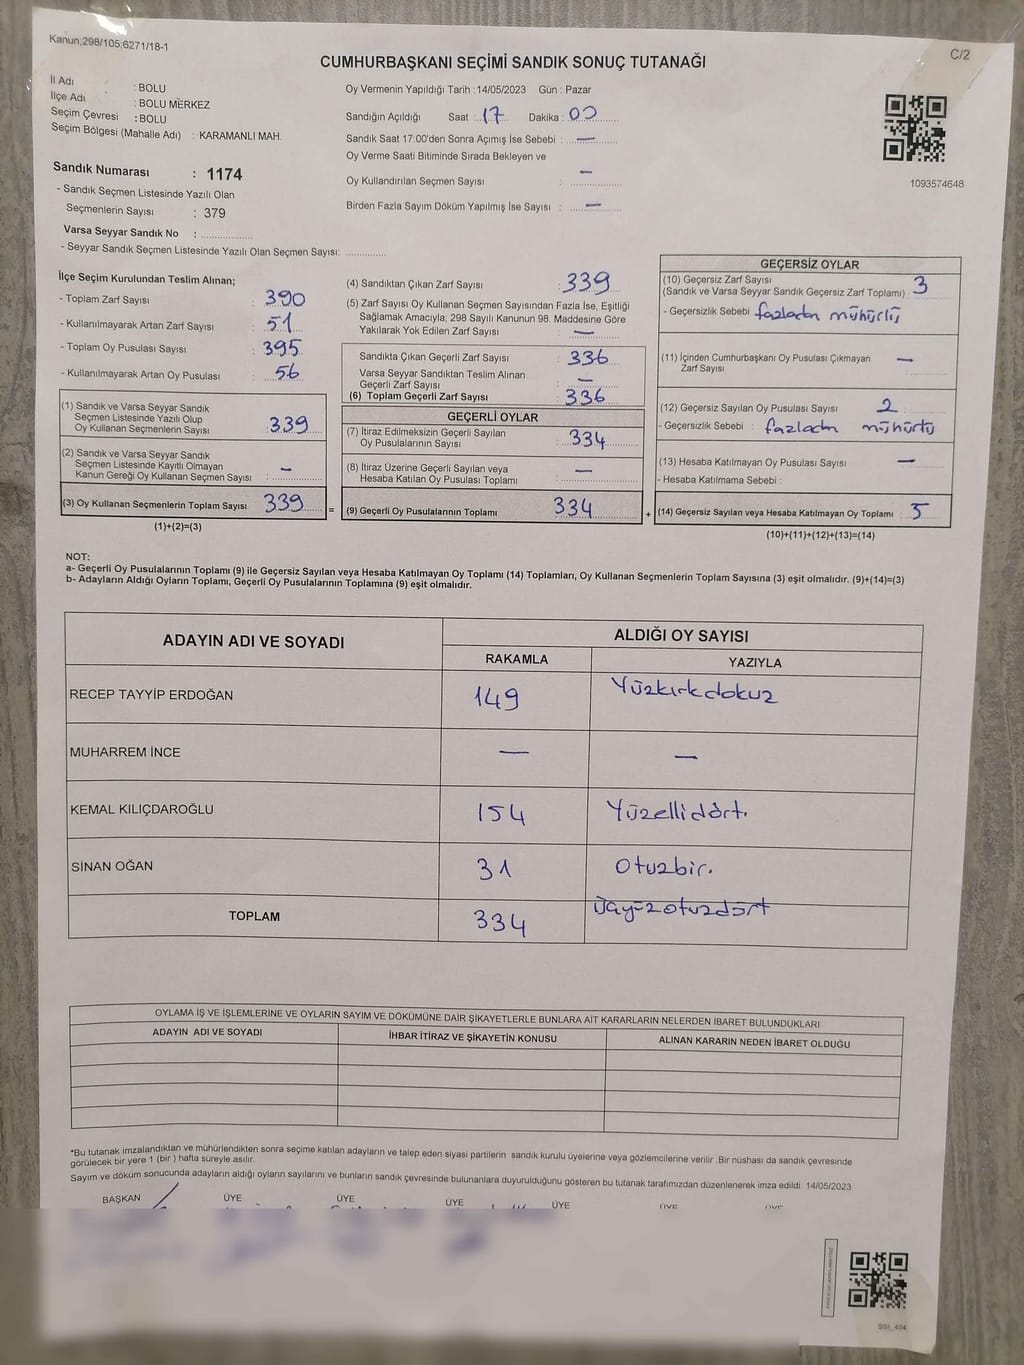 Kanun;298/105;6271/18-1
C/2
CUMHURBAŞKANI SEÇİMİ SANDIK SONUÇ TUTANAĞI
İl Adı : BOLU
İlçe Adı : BOLU MERKEZ
Seçim Çevresi : BOLU
Seçim Bölgesi (Mahalle Adı) : KARAMANLI MAH.
Oy Vermenin Yapıldığı Tarih :14/05/2023 Gün : Pazar
Sandığın Açıldığı Saat : 17 Dakika : 00
Sandık Saat 17:00'den Sonra Açımış İse Sebebi : —
Oy Verme Saati Bitiminde Sırada Bekleyen ve
Oy Kullandırılan Seçmen Sayısı : —
Birden Fazla Sayım Döküm Yapılmış İse Sayısı : —
1093574648
Sandık Numarası : 1174
- Sandık Seçmen Listesinde Yazılı Olan
Seçmenlerin Sayısı : 379
Varsa Seyyar Sandık No :
- Seyyar Sandık Seçmen Listesinde Yazılı Olan Seçmen Sayısı:
İlçe Seçim Kurulundan Teslim Alınan;
- Toplam Zarf Sayısı : 390
- Kullanılmayarak Artan Zarf Sayısı : 51
- Toplam Oy Pusulası Sayısı : 395
- Kullanılmayarak Artan Oy Pusulası : 56
(1) Sandık ve Varsa Seyyar Sandık
Seçmen Listesinde Yazılı Olup
Oy Kullanan Seçmenlerin Sayısı : 339
(2) Sandık ve Varsa Seyyar Sandık
Seçmen Listesinde Kayıtlı Olmayan
Kanun Gereği Oy Kullanan Seçmen Sayısı : —
(3) Oy Kullanan Seçmenlerin Toplam Sayısı 339 =
(1)+(2)=(3)
(4) Sandıktan Çıkan Zarf Sayısı : 339
(5) Zarf Sayısı Oy Kullanan Seçmen Sayısından Fazla İse, Eşitliği
Sağlamak Amacıyla; 298 Sayılı Kanunun 98. Maddesine Göre
Yakılarak Yok Edilen Zarf Sayısı : —
Sandıkta Çıkan Geçerli Zarf Sayısı : 336
Varsa Seyyar Sandıktan Teslim Alınan
Geçerli Zarf Sayısı : —
(6) Toplam Geçerli Zarf Sayısı : 336
GEÇERLİ OYLAR
(7) İtiraz Edilmeksizin Geçerli Sayılan
Oy Pusulalarının Sayısı : 334
(8) İtiraz Üzerine Geçerli Sayılan veya
Hesaba Katılan Oy Pusulası Toplamı : —
(9) Geçerli Oy Pusulalarının Toplamı 334 +
GEÇERSİZ OYLAR
(10) Geçersiz Zarf Sayısı
(Sandık ve Varsa Seyyar Sandık Geçersiz Zarf Toplamı) : 3
- Geçersizlik Sebebi : fazladan mühürlü
(11) İçinden Cumhurbaşkanı Oy Pusulası Çıkmayan
Zarf Sayısı : —
(12) Geçersiz Sayılan Oy Pusulası Sayısı : 2
- Geçersizlik Sebebi : fazladan mühürlü
(13) Hesaba Katılmayan Oy Pusulası Sayısı : —
- Hesaba Katılmama Sebebi :
(14) Geçersiz Sayılan veya Hesaba Katılmayan Oy Toplamı : 5
(10)+(11)+(12)+(13)=(14)
NOT:
a- Geçerli Oy Pusulalarının Toplamı (9) ile Geçersiz Sayılan veya Hesaba Katılmayan Oy Toplamı (14) Toplamları, Oy Kullanan Seçmenlerin Toplam Sayısına (3) eşit olmalıdır. (9)+(14)=(3)
b- Adayların Aldığı Oyların Toplamı, Geçerli Oy Pusulalarının Toplamına (9) eşit olmalıdır.
ADAYIN ADI VE SOYADI ALDIĞI OY SAYISI
RAKAMLA YAZIYLA
RECEP TAYYİP ERDOĞAN 149 Yüzkırkdokuz
MUHARREM İNCE — —
KEMAL KILIÇDAROĞLU 154 Yüzellidört.
SİNAN OĞAN 31 Otuzbir.
TOPLAM 334 Üçyüzotuzdört
OYLAMA İŞ VE İŞLEMLERİNE VE OYLARIN SAYIM VE DÖKÜMÜNE DAİR ŞİKAYETLERLE BUNLARA AİT KARARLARIN NELERDEN İBARET BULUNDUKLARI
ADAYIN ADI VE SOYADI İHBAR İTİRAZ VE ŞİKAYETİN KONUSU ALINAN KARARIN NEDEN İBARET OLDUĞU
*Bu tutanak imzalandıktan ve mühürlendikten sonra seçime katılan adayların ve talep eden siyasi partilerin sandık kurulu üyelerine veya gözlemcilerine verilir .Bir nüshası da sandık çevresinde
görülecek bir yere 1 (bir ) hafta süreyle asılır.
Sayım ve döküm sonucunda adayların aldığı oyların sayılarını ve bunların sandık çevresinde bulunanlara duyurulduğunu gösteren bu tutanak tarafımızdan düzenlenerek imza edildi. 14/05/2023
BAŞKAN ÜYE ÜYE ÜYE ÜYE ÜYE ÜYE